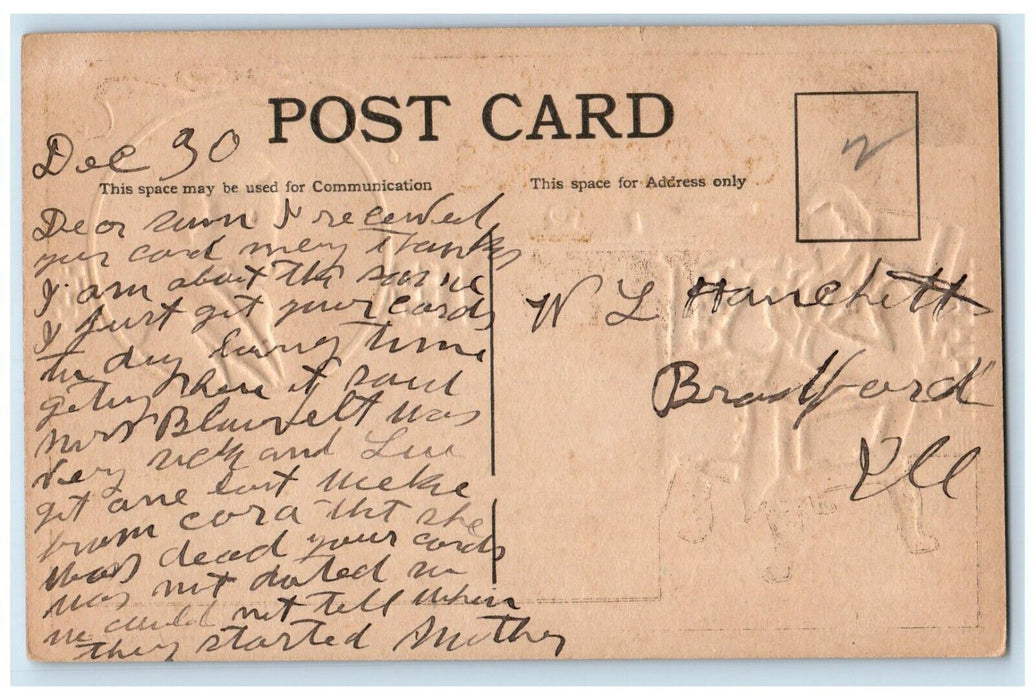 POST CARD
Dec 30
This space may be used for Communication
This space for Address only
Dear sum I received
your card meny thanks
I am about the same
I just get your cards
to day long time
geting here it said
Mrs Blauvelt was
very sick and Lue
got one last weeke
from cora tht she
was dead your cards
was not dated so
we could not tell when
they started Mother
W L Hanchett
Bradford
Ill